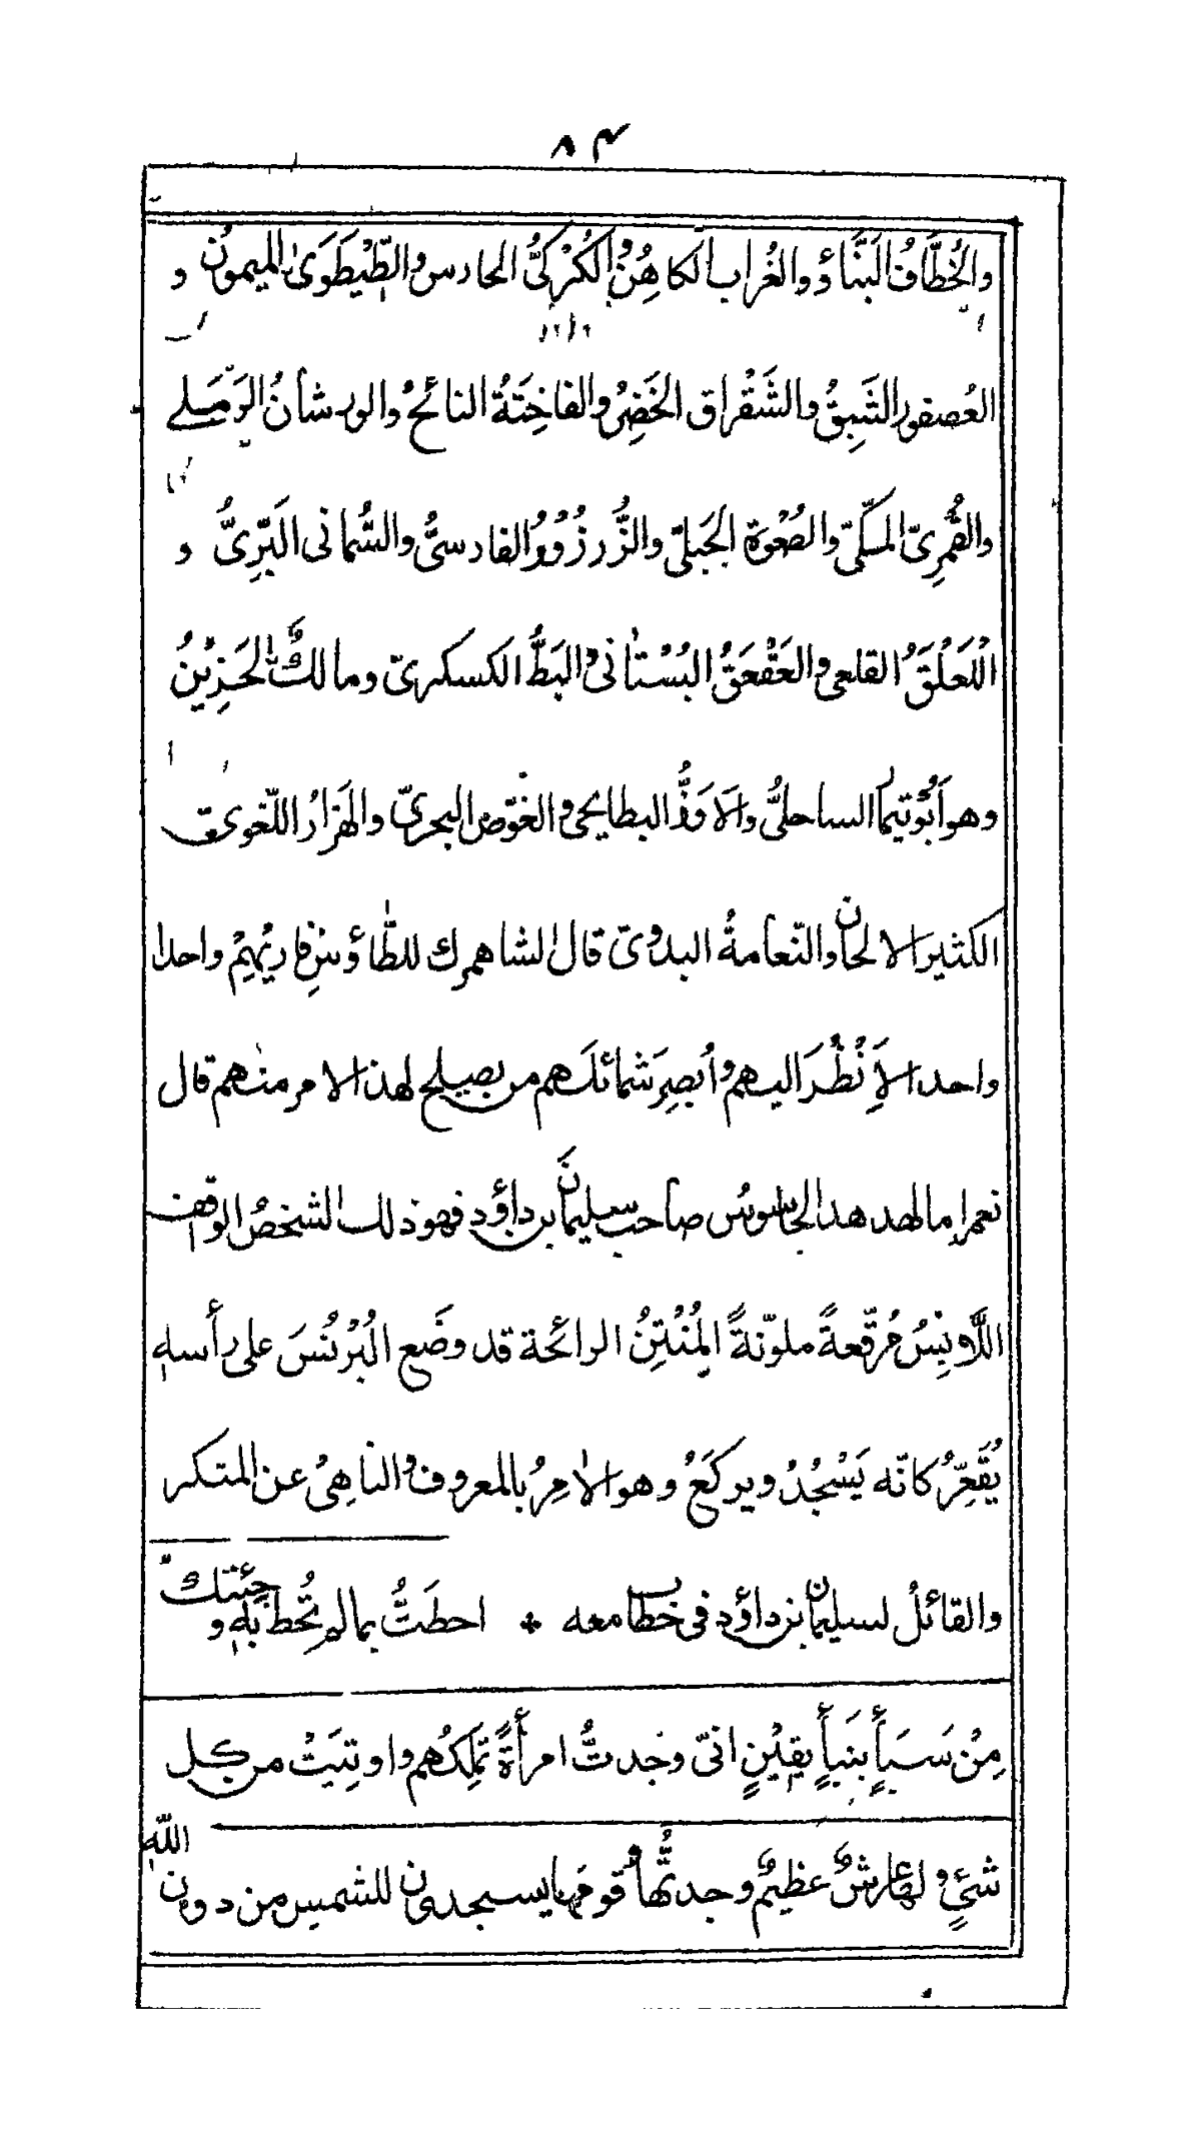 ۸۴
والخُطَّافُ البَنَّاءُ والغُراب الكاهِنُ والكُرْكيُّ الحارس والطِّيْطَوَىٰ الميمونُ و
العُصفور الشَبِقُ والشَقْراق الخَضِرُ والفاخِتَةُ النائحُ والورشأنُ الرَمَلے
والقُمْرِىّ المكّىّ والصُعْوَة الجَبلىّ والزُّرزُوْرُ الفارسىُّ والسُّمانى البَرِّىُّ و
اللَعَلْقَ القلعى والعَقْعَقُ البُسْتانى والبَطُّ الكسكرىّ ومالكٌ الحَزِيْنُ
وهو أَبُوتيمار الساحلىُّ والاَوَزُّ البطايحى والغوّص البحرىّ والهَزارُ اللّغوىّ
الكثير الالحان والنّعامةُ البدوىّ قال الشاهمرك للطّاؤس فارِيْهِمْ واحدا
واحدا لاَِنْظُرَ اليهم وأبصِرَ شمائلَهم من يصلح لهذا الامر منهم قال
نعم اما الهدهد الجاسوسُ صاحب سليمانَ بن داؤد فهو ذلك الشخصُ الواقف
اللَّابِسُ مُرقّعةً ملوّنةً المُنْتِنُ الرائحة قد وضَع البُرْنُسَ على رأسه
يُقَعِّرُ كانّه يَسْجُدُ ويركَعُ وهو الاٰمِرُ بالمعروف والناهِىُ عن المنكر
والقائلُ لسليمان بن داؤد فى خطاب معه ÷ احطَتُّ بما لم تُحْط به وجِئتك
مِنْ سَبَأٍ بِنَبأٍ يقيْنٍ انىّ وجدتُّ امرأةً تَمْلِكُهم واوتِيَتْ من كل
شئٍ ولها عرشٌ عظيمٌ وجدتُّها وقومَها يسجدون للشمس من دون الله